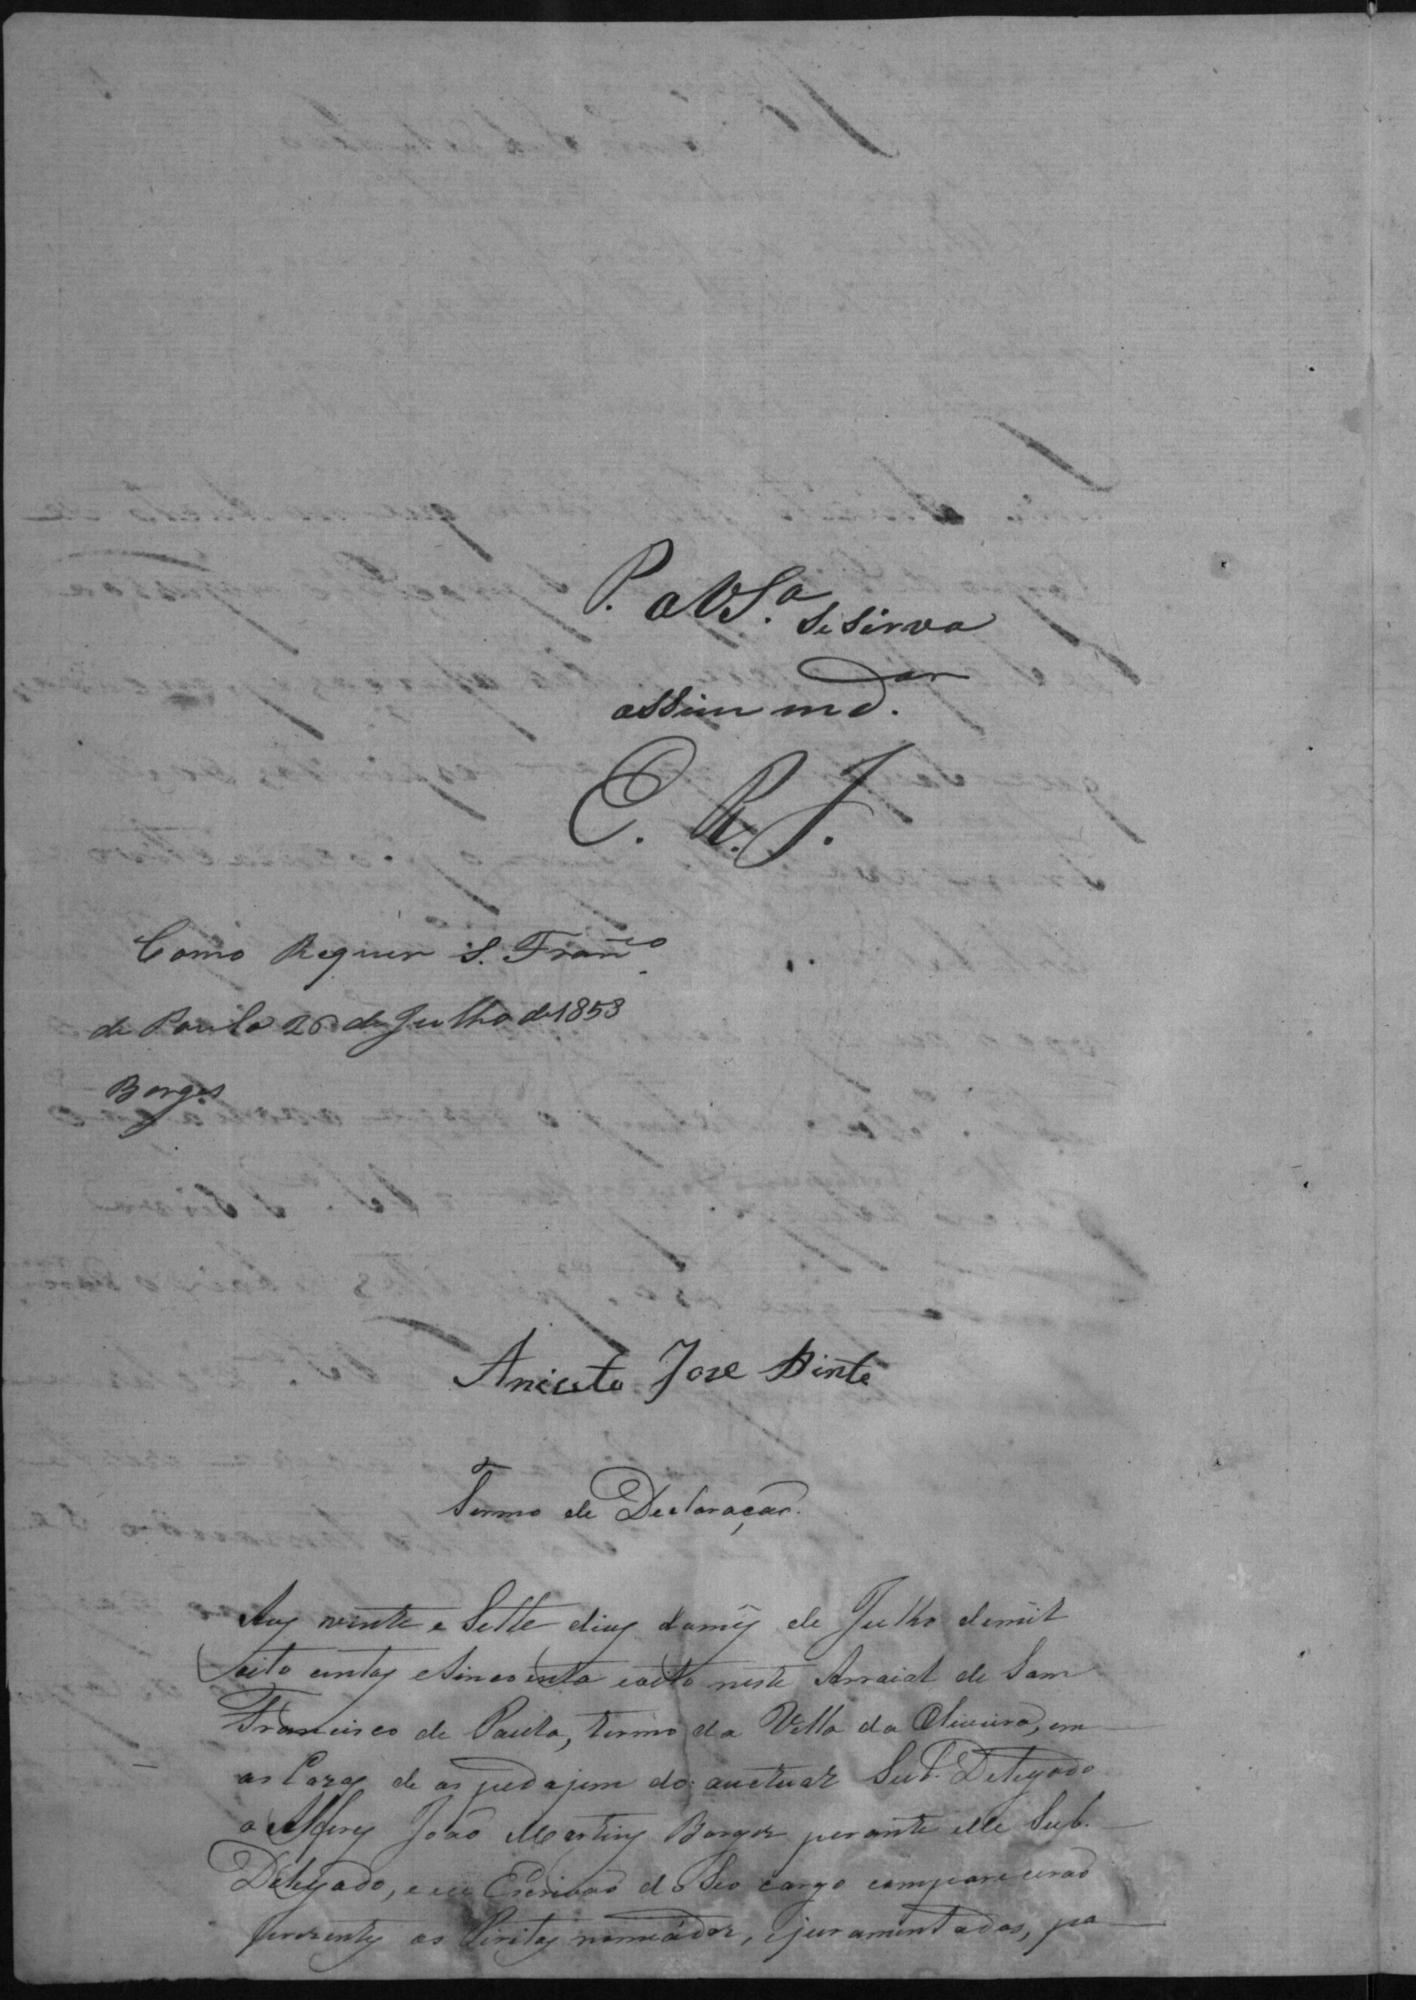 P. a V S.ª se sirva
assim md.ar
E. R. J.
Como Requer S. Franco
de Paula 26 de Julho de 1858
Borges
Aniceto Jose Pinto
Termo de Declaração.
Aos vinte e Sette dias do mes de Julho de mil
oito centos e Sincoenta e oito neste Arraial de Sam
Francisco de Paula, termo da Villa da Oliveira, em
as Cazas de os pedajem do auctual Sub. Delegado
o Alferes João Martins Borges perante elle Sub.
Delegado, e eu Escrivão do Seo cargo comparecerão
prezentes os Peritos nomeádos, ejuramentados, pa